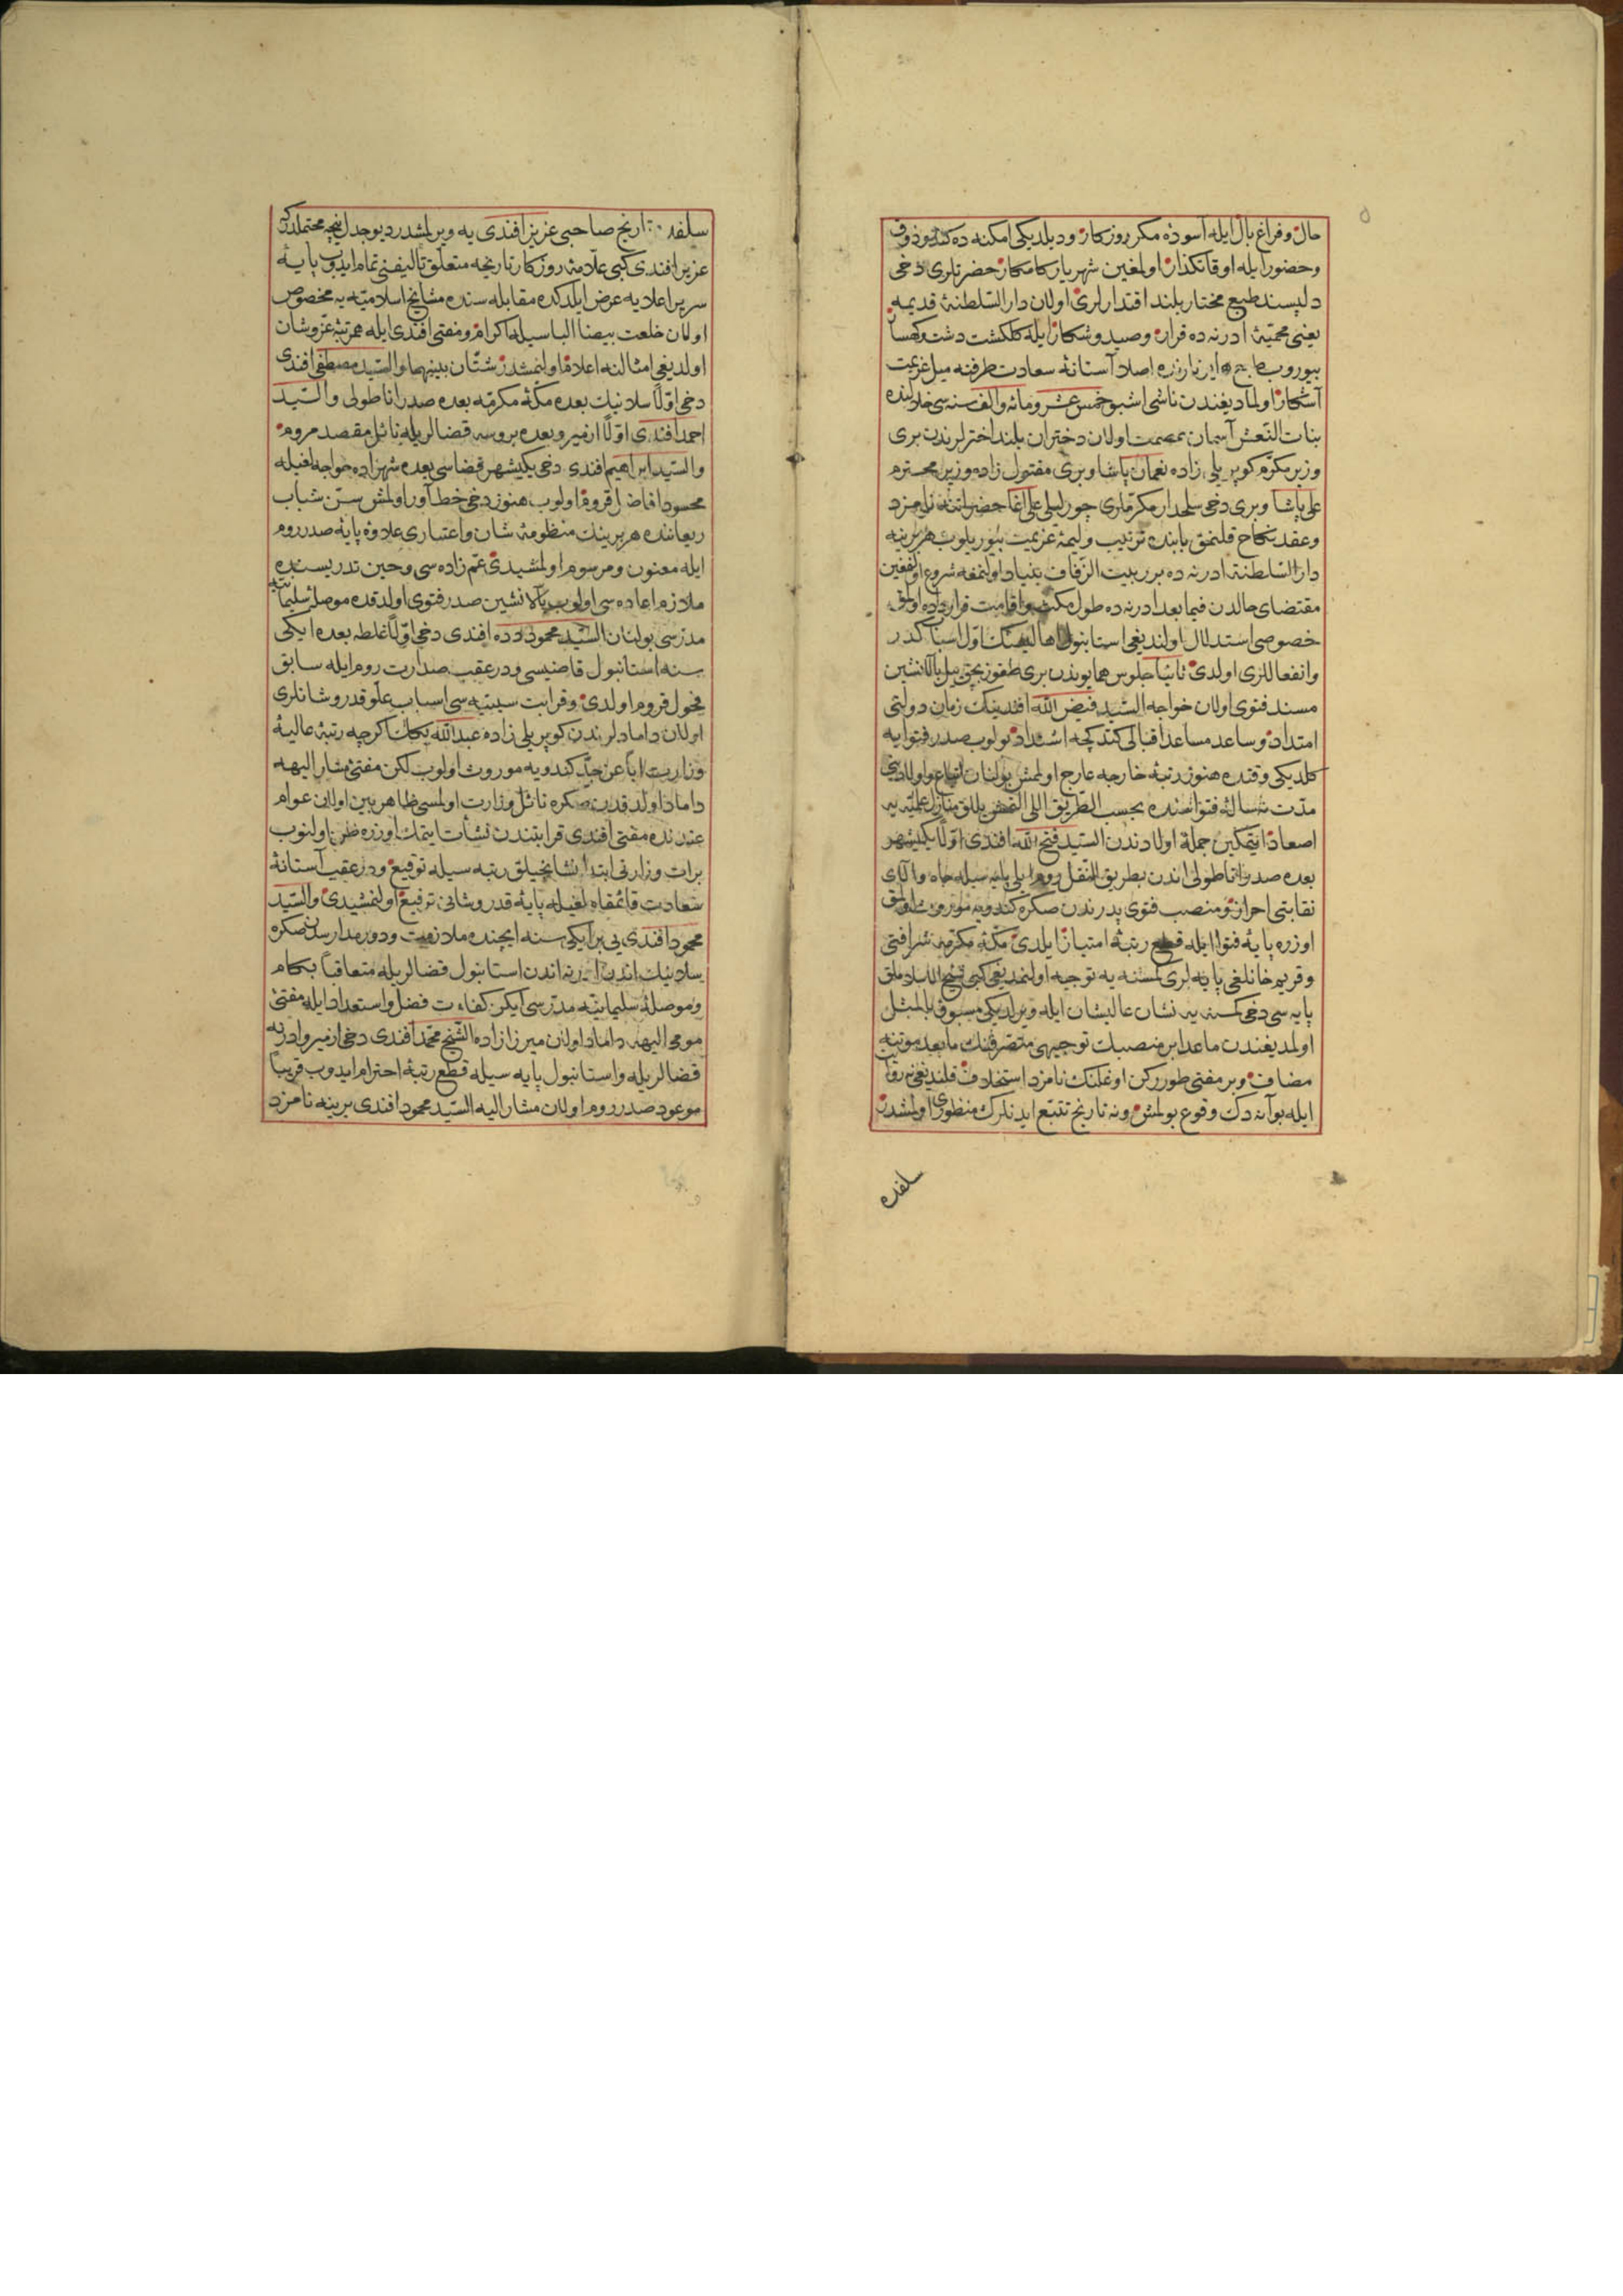 حال وفراغ بال ایله آسوده مکر روزکار ودیلدیکی امکنه ده کندو ذوق
وحضور ایله اوقاتکذار اولمغین شهریار کامکار حضرتلری دخی
دلپسند طبع مختار بلند اقتدارلری اولان دار السلطنۀ قدیمه
یعنی محمیۀ ادرنه ده قرار وصید وشکار ایله کلکشت دشت وکهسار
بیوروب اصلا آستانۀ سعادت طرفنه میل عزیمت
آشکار اولمادیغندن ناشی اشبو خمس عشر ومائه والف سنه سی خلالنده
بنات النعش آسمان عصمت اولان دختران بلند اخترلرندن بری
وزیر مکرم کوپریلی زاده نعمان پاشا وبری مقتول زاده وزیر محترم
علی پاشا وبری دخی سلحدار مکرملری چورلیلی علی اغا حضرتلرینه نامزد
وعقد نکاح قلنمق بابنده ترتیب ولیمۀ عزیمت بیوریلوب هر برینه
دار السلطنۀ ادرنه ده برر بیت الزفاف بنیاد اولنمغه شروع اولنمغین
مقتضای حالدن فیما بعد ادرنه ده طول مکث واقامت قرارداده اولمق
خصوصی استدلال اولندیغی استانبول اهالیسنک اول اسباب کدر
وانفعاللری اولدی ثانیا جلوس همایوندن بری طقوز بچق ییل بالانشین
مسند فتوی اولان خواجه السید فیض الله افندینک زمان دولتی
امتداد وساعد مساعد اقبالی کتدکچه اشتداد بولوب صدر فتوایه
کلدیکی وقتده هنوز رتبۀ خارجه عارج اولمش بولنان اتباع واولادینی
مدت فتواسنده بحسب الطریق اللی القمش ییللق منازل علمیه یه
اصعاد ایتمکین جملۀ اولادندن السید فتح الله افندی اولا یکیشهر
بعده صدر اناطولی اندن بطریق النقل روم ایلی پایه سیله جاه والای
نقابتی احراز ومنصب فتوی پدرندن صکره کندویه موروث اولمق
اوزره پایۀ فتوا ایله قطع رتبۀ امتیاز ایلدی مکۀ مکرمه شرافتی
وقریم خانلغی پایه لری کمسنه یه توجیه اولنمدیغی کبی شیخ الاسلاملق
پایه سی دخی کمسنه یه نشان عالیشان ایله ویرلدیکی مسبوق بالمثل
اولمدیغندن ماعدا بر منصبک توجیهی متصرفنک مابعد موتنه
مضاف وبر مفتی طوررکن اوغلنک نامزد استخلاف قلندیغی نه روایت
ایله بو آنه دک وقوع بولمش ونه تاریخ تتبع ایدنلرک منظوری اولمشدر
سلفده
سلفده تاریخ صاحبی عزیز افندی یه ویرلمشدر دیو جدل ایچه محتملدر که
عزیز افندی کبی علامۀ روزکار تاریخه متعلق تالیفنی تمام ایدوب پایۀ
سریر اعلایه عرض ایلدکده مقابله سنده مشایخ اسلامیه یه مخصوص
اولان خلعت بیضا الباسیله اکرام ومفتی افندی ایله همرتبۀ عز وشان
اولدیغی امثالنه اعلام اولنمشدر شتان بینهما والسید مصطفی افندی
دخی اولا سلانیک بعده مکۀ مکرمه بعده صدر اناطولی والسید
احمد افندی اولا ازمیر وبعده بروسه قضالریله نائل مقصد مروم
والسید ابراهیم افندی دخی یکیشهر قضاسی بعده شهزاده خواجه لغیله
محسود افاضل قروم اولوب هنوز دخی خط آور اولمش سن شباب
ریعاننده هر برینک منظومۀ شان واعتباری علاوۀ پایۀ صدر روم
ایله معنون ومرسوم اولمشیدی عم زاده سی وحین تدریسنده
ملازم اعاده سی اولوب بالانشین صدر فتوی اولدقده موصلۀ سلیمانیه
مدرسی بولنان السید محمود دده افندی دخی اولا غلطه بعده ایکی
سنه استانبول قاضیسی ودر عقب صدارت روم ایله سابق
فحول قروم اولدی وقرابت سببیه سی اسباب علو قدر وشانلری
اولان دامادلرندن کوپریلی زاده عبد الله پاشا اکرچه رتبۀ عالیۀ
وزارت ابا عن جد کندویه موروث اولوب لکن مفتی مشار الیهه
داماد اولدقدن صکره نائل وزارت اولمسی ظاهر بین اولان عوام
عندنده مفتی افندی قرابتندن نشأت ایتمک اوزره ظن اولنوب
برات وزارتی ابتدا نشانجیلق رتبه سیله توقیع ودر عقب آستانۀ
سعادت قائمقاملغیله پایۀ قدر وشانی ترفیع اولنمشیدی والسید
محمود افندی یی بر ایکی سنه ایچنده ملازمت ودور مدارسدن صکره
سلانیک اندن ادرنه اندن استانبول قضالریله متعاقبا بکام
وموصلۀ سلیمانیه مدرسی ایکن کفاءت فضل واستعداد ایله مفتی
مومی الیهه داماد اولان میرزا زاده الشیخ محمد افندی دخی ازمیر وادرنه
قضالریله واستانبول پایه سیله قطع رتبۀ احترام ایدوب قریبا
موعود صدر روم اولان مشار الیه السید محمود افندی یرینه نامزد